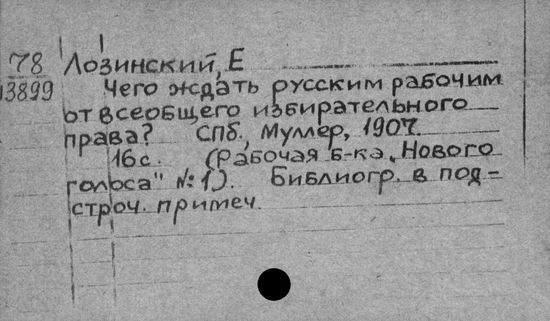 78
13899
Лозинский, Е
Чего ждать русским рабочим
от всеобщего избирательного
права? СПб., Муллер, 1907.
16 с. (Рабочая б-ка „Нового
голоса" №1). Библиогр. в под-
строч. примеч.